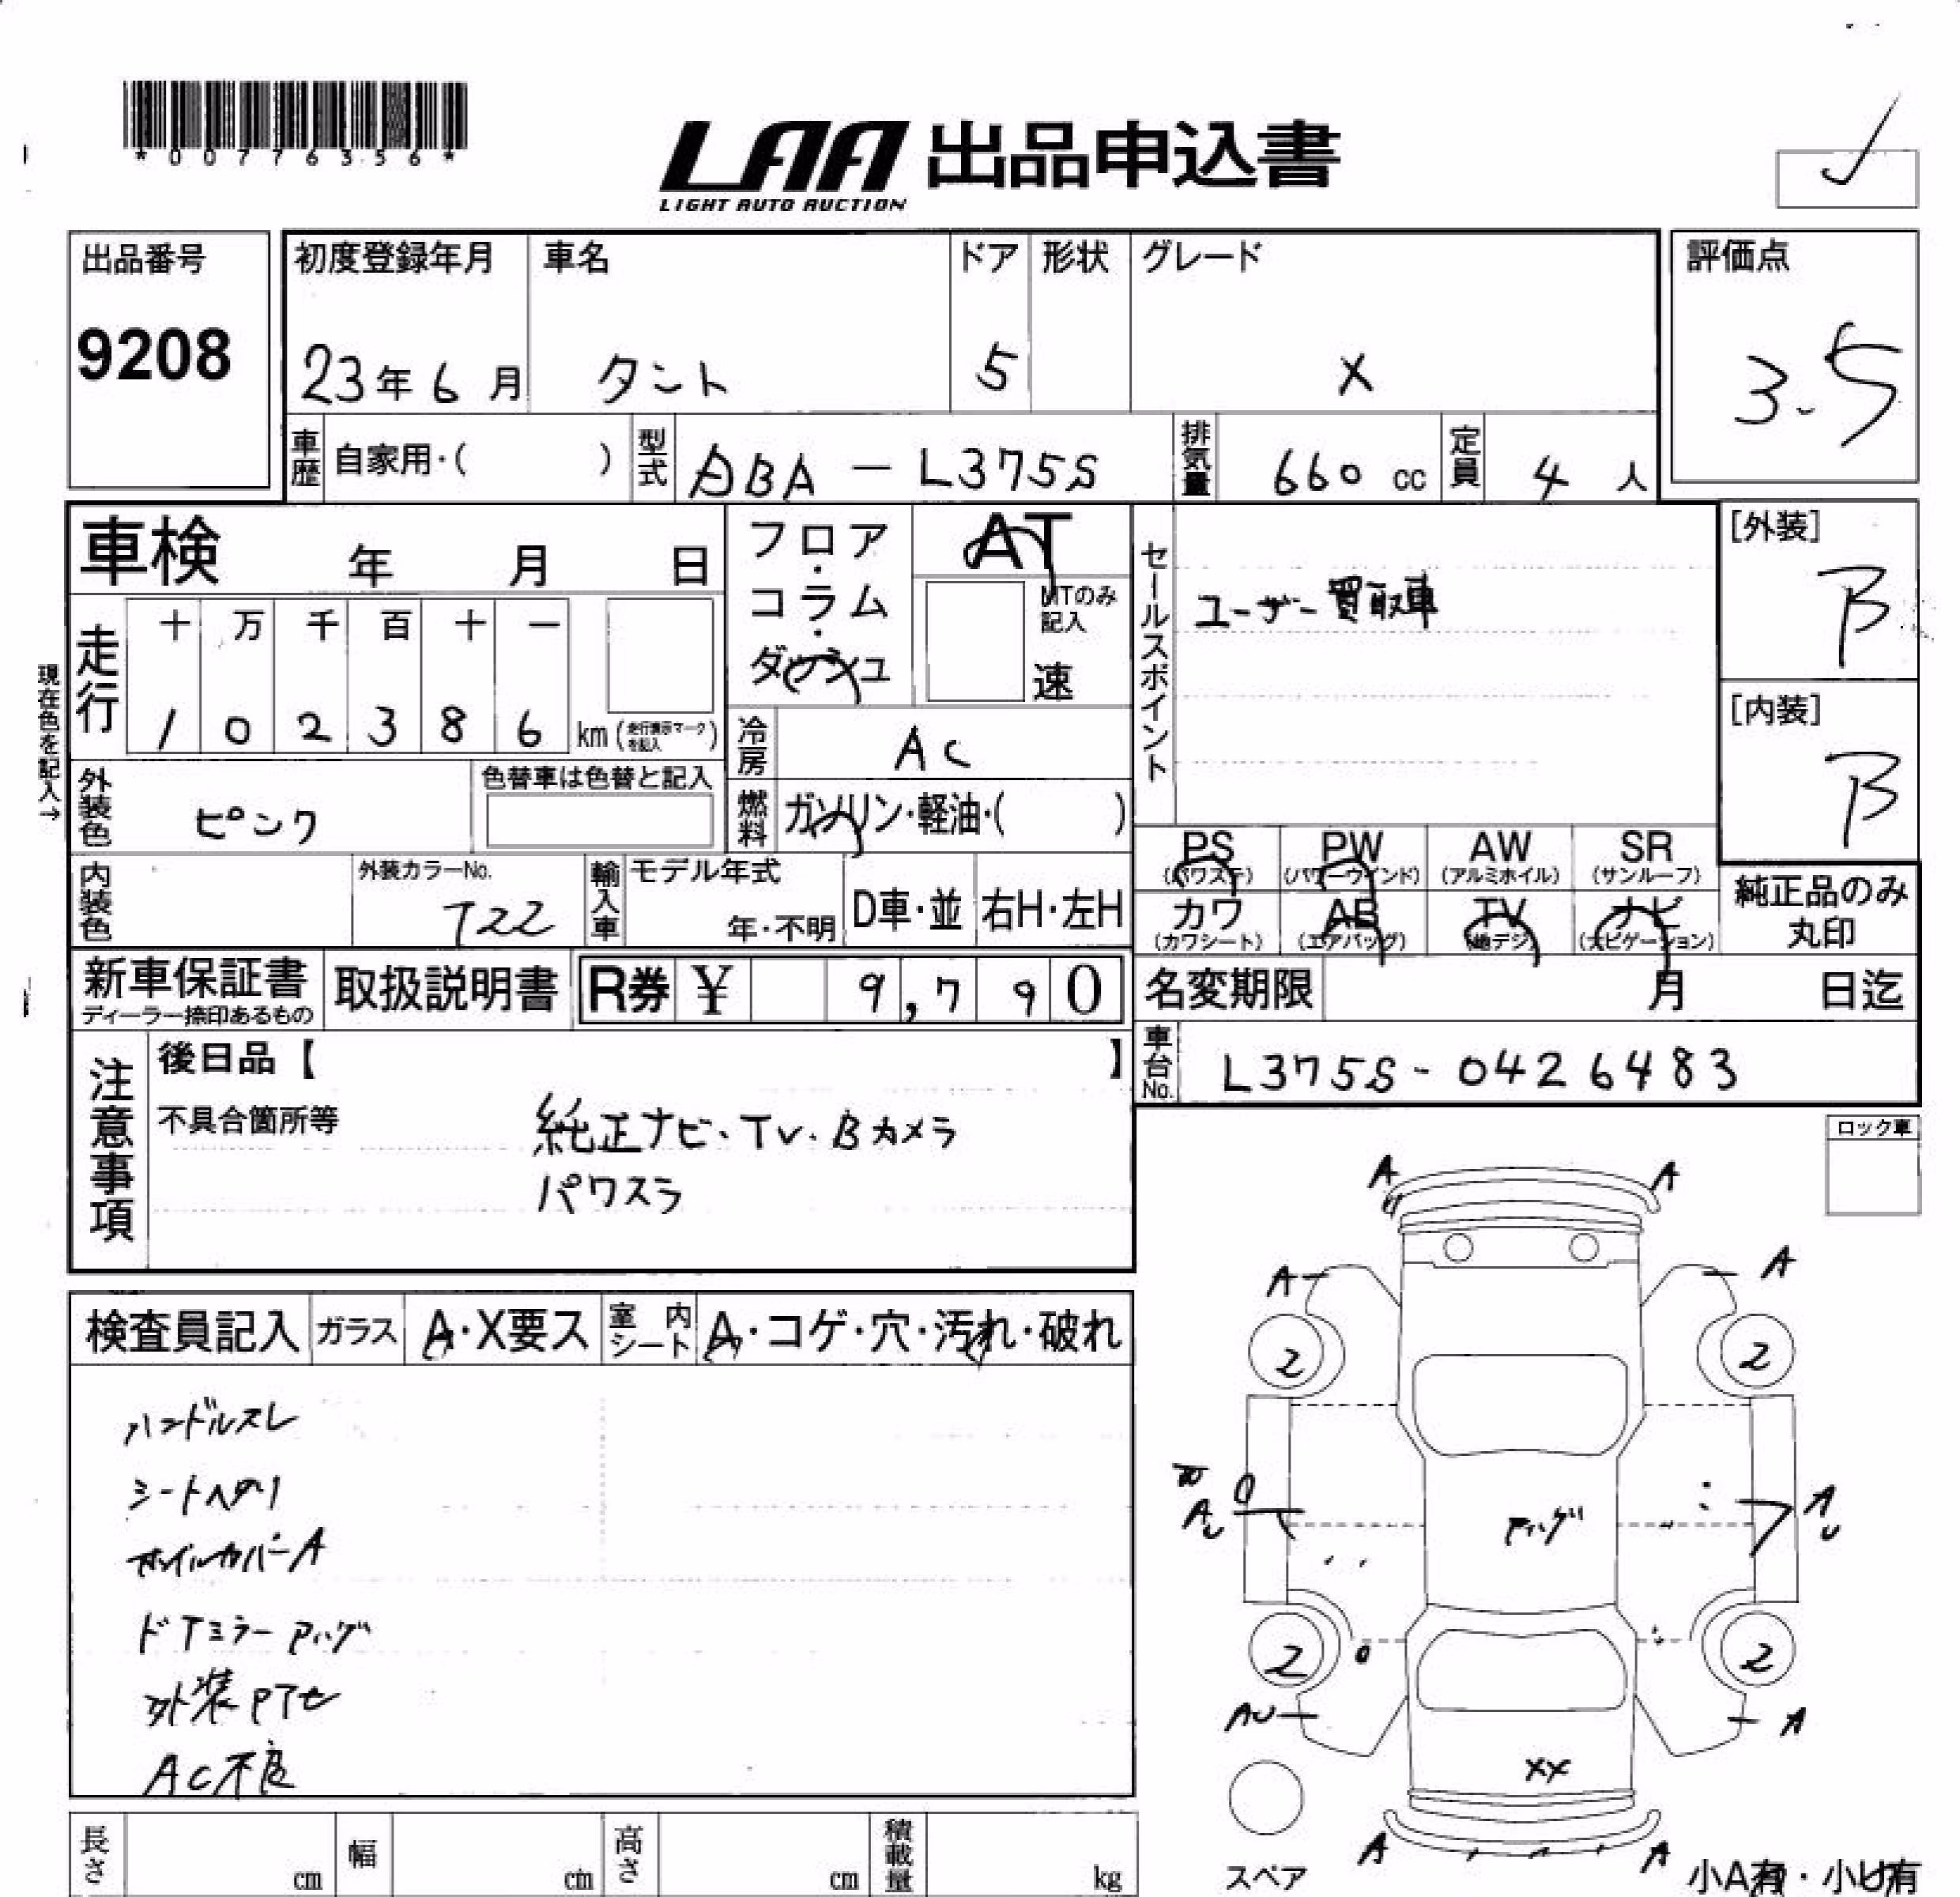 *00776356*
LAA 出品申込書
LIGHT AUTO AUCTION
出品番号
9208
初度登録年月
23年6月
車名
タント
ドア
5
形状
グレード
X
評価点
3.5
車歴
自家用・( )
型式
ABA - L375S
排気量
660 cc
定員
4 人
車検 年 月 日
フロア・コラム・ダッシュ
AT
MTのみ記入
速
セールスポイント
ユーザー買取車
[外装]
B
[内装]
B
現在色を記入→
走行
十 万 千 百 十 一
1 0 2 3 8 6 km(走行表示マークを記入)
冷房
AC
外装色
ピンク
色替車は色替と記入
燃料
ガソリン・軽油・( )
PS
(パワステ)
PW
(パワーウインド)
AW
(アルミホイル)
SR
(サンルーフ)
内装色
外装カラーNo.
T22
輸入車
モデル年式
年・不明
D車・並
右H・左H
カワ
(カワシート)
AB
(エアバッグ)
TV
(地デジ)
ナビ
(ナビゲーション)
純正品のみ
丸印
新車保証書
ディーラー捺印あるもの
取扱説明書
R券 ¥ 9,790
名変期限 月 日迄
車台No.
L375S-0426483
注意事項
後日品【 】
不具合箇所等
純正ナビ・TV・Bカメラ
パワスラ
ロック車
検査員記入
ガラス
A・X要ス
室内シート
A・コゲ・穴・汚れ・破れ
ハンドルスレ
シートヘタリ
ホイルカバーA
ドアミラー
外装
AC不良
A A
A A
2 2
A A
U U
2 2
AU A
XX
A A
スペア
小A有・小U有
長さ cm
幅 cm
高さ cm
積載量 kg